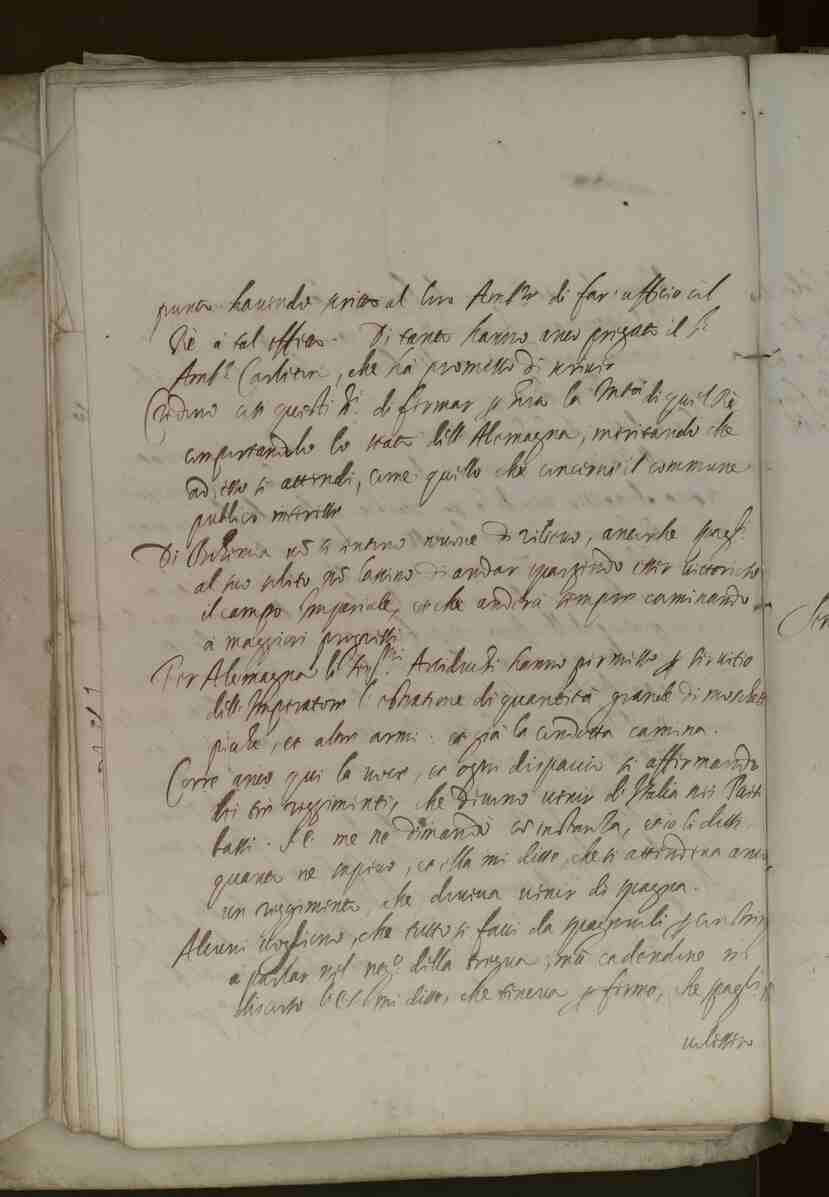 punto havendo scritto al loro Amb.r di far ufficio col
Rè à tal effetto. Di tanto hanno anco pregato il s.r
Amb.r Carleton, che hà promesso di scriver
Credono con questi di fermar la M.tà di quel Rè
importandolo lo stato dell'Alemagna, meritando che
ad esso si attendi, come quello che concerne il commune
publico interesse
Di Bohemia nõ s'intende nuove di rilievo, ancorche spag.li
al suo solito nõ lassino di andar spargendo esser vittorioso
il campo Imperiale, et che anderà sempre caminando
à maggiori progressi
Per Alemagna li Ser.mi Arciduchi hanno permesso servitio
dell'Imperatore l'estratione di quantità grande di moschetti
picche, et altre armi: et già la condotta camina.
Corre anco qui la voce, et ogni dispaccio si affirmando
li tre reggimenti, che devono venir d'Italia nei Paesi
bassi. S. E. me ne dimandò cõ instanza, et io li dissi
quanto ne sapevo, et ella mi disse, che si attendeva anco
un reggimento, che doveva venir di spagna.
Alcuni vogliono, che tutto si facci da spagnuoli
à parlar nel neg.o della tregua; mà cadendone in
discorso S. E. mi disse, che teneva fermo, che spag.li
volessero